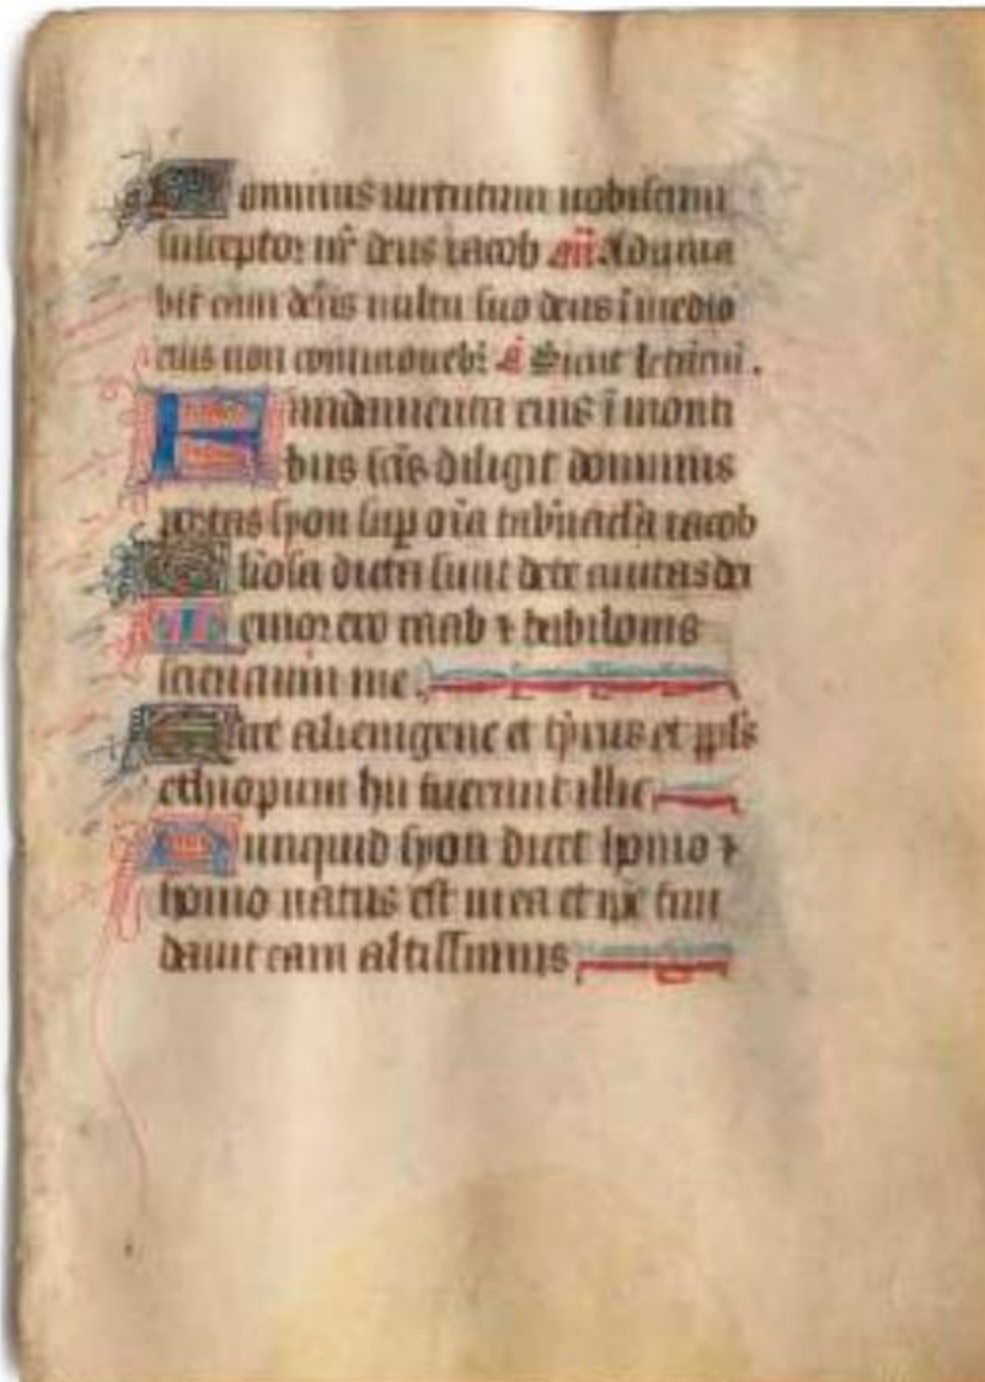 Dominus uirtutum nobiscum
susceptor nr̄ deus iacob añ. Adiuua
bit eam de᷒ uultu suo deus ī medio
eius non commouebit̄ a̅ Sicut letātiū.
Fundamenta eius ī monti
bus sc̄is diligit dominus
portas syon sup oīa tab̄nacl̄a iacob
Gloriosa dicta sunt de te ciuitas dei
Memor ero raab ⁊ babilonis
scientium me.
Ecce alienigene et tyrus et ppl̄s
ethiopum hii fuerunt illic
Nunquid syon dicet homo ⁊
homo natus est in ea et ip̄e fun
dauit eam altissimus